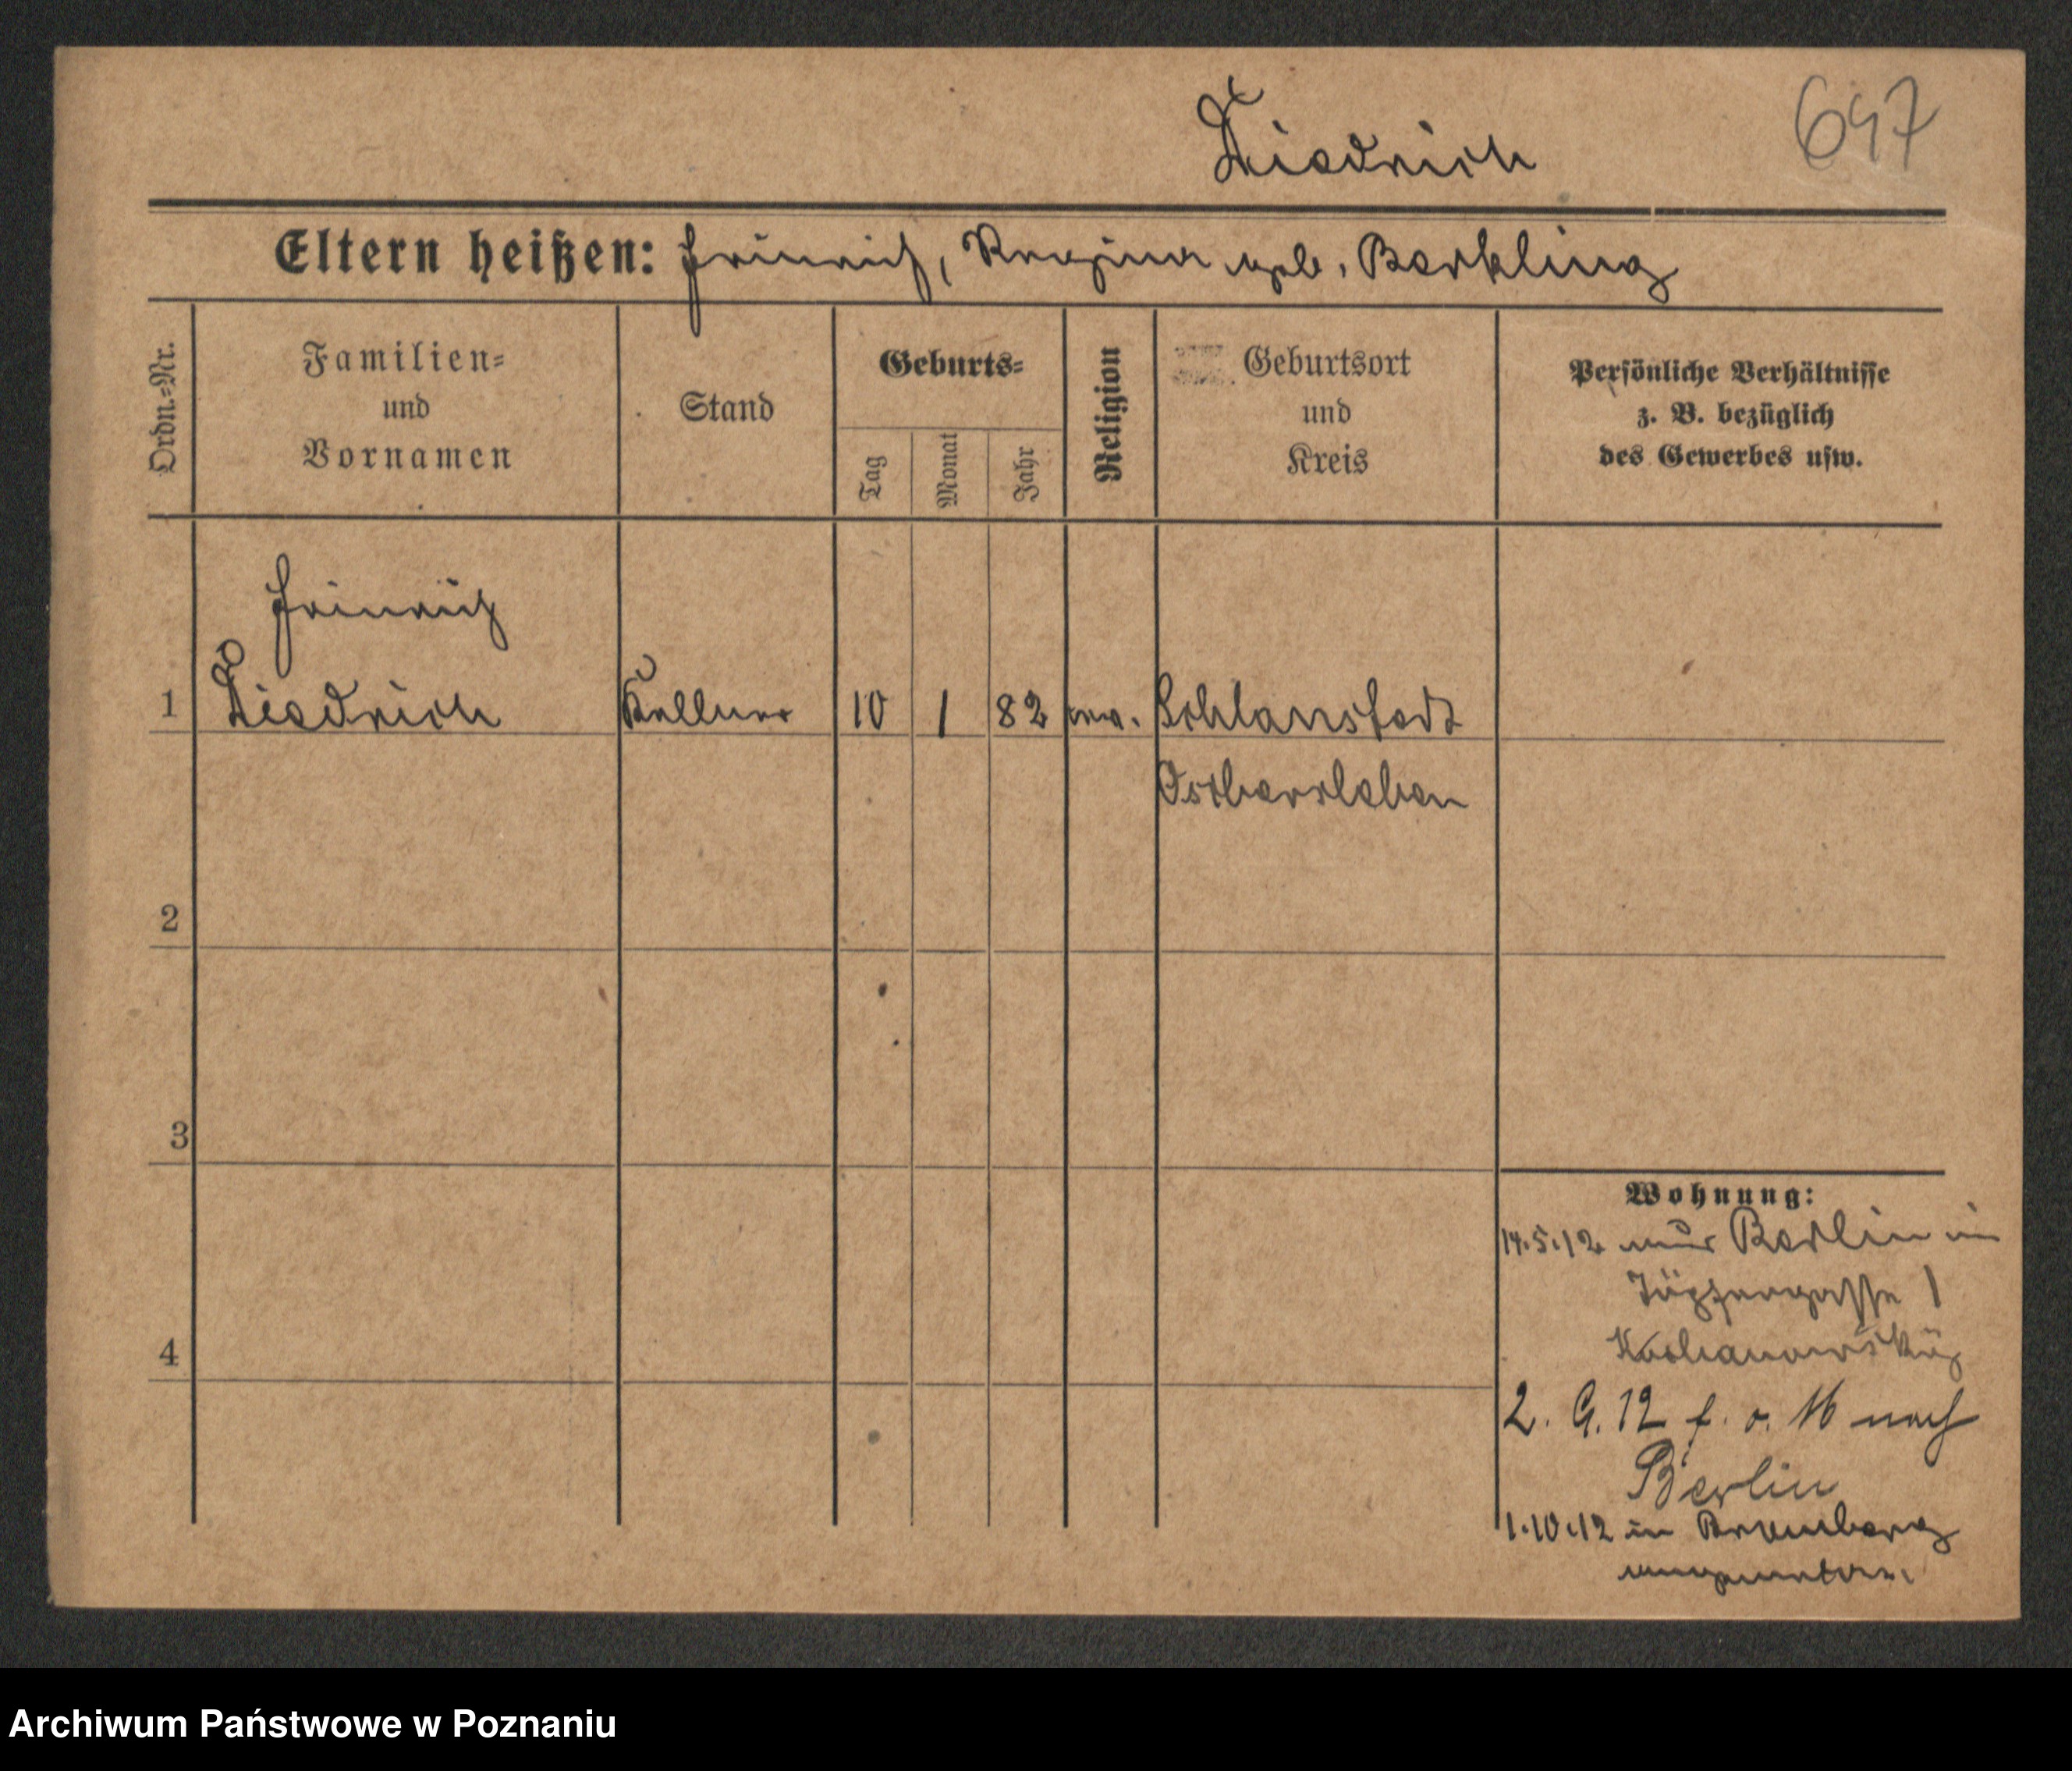 Diedrich 697
Eltern heißen: Heinrich, Regina geb. Berkling
Ordn.=Nr.
Familien=
und
Vornamen
Stand
Geburts=
Tag
Monat
Jahr
Religion
Geburtsort
und
Kreis
Persönliche Verhältnisse
z. B. bezüglich
des Gewerbes usw.
Heinrich
1 Diedrich Kellner 10 1 82 ev. Schlanstedt
Oschersleben
2
3
4
Wohnung:
14.5.12 aus Berlin in
Töpfergasse 1
2. 9. 12 f. o. W nach
Berlin
1.10.12 in Bromberg
Archiwum Państwowe w Poznaniu